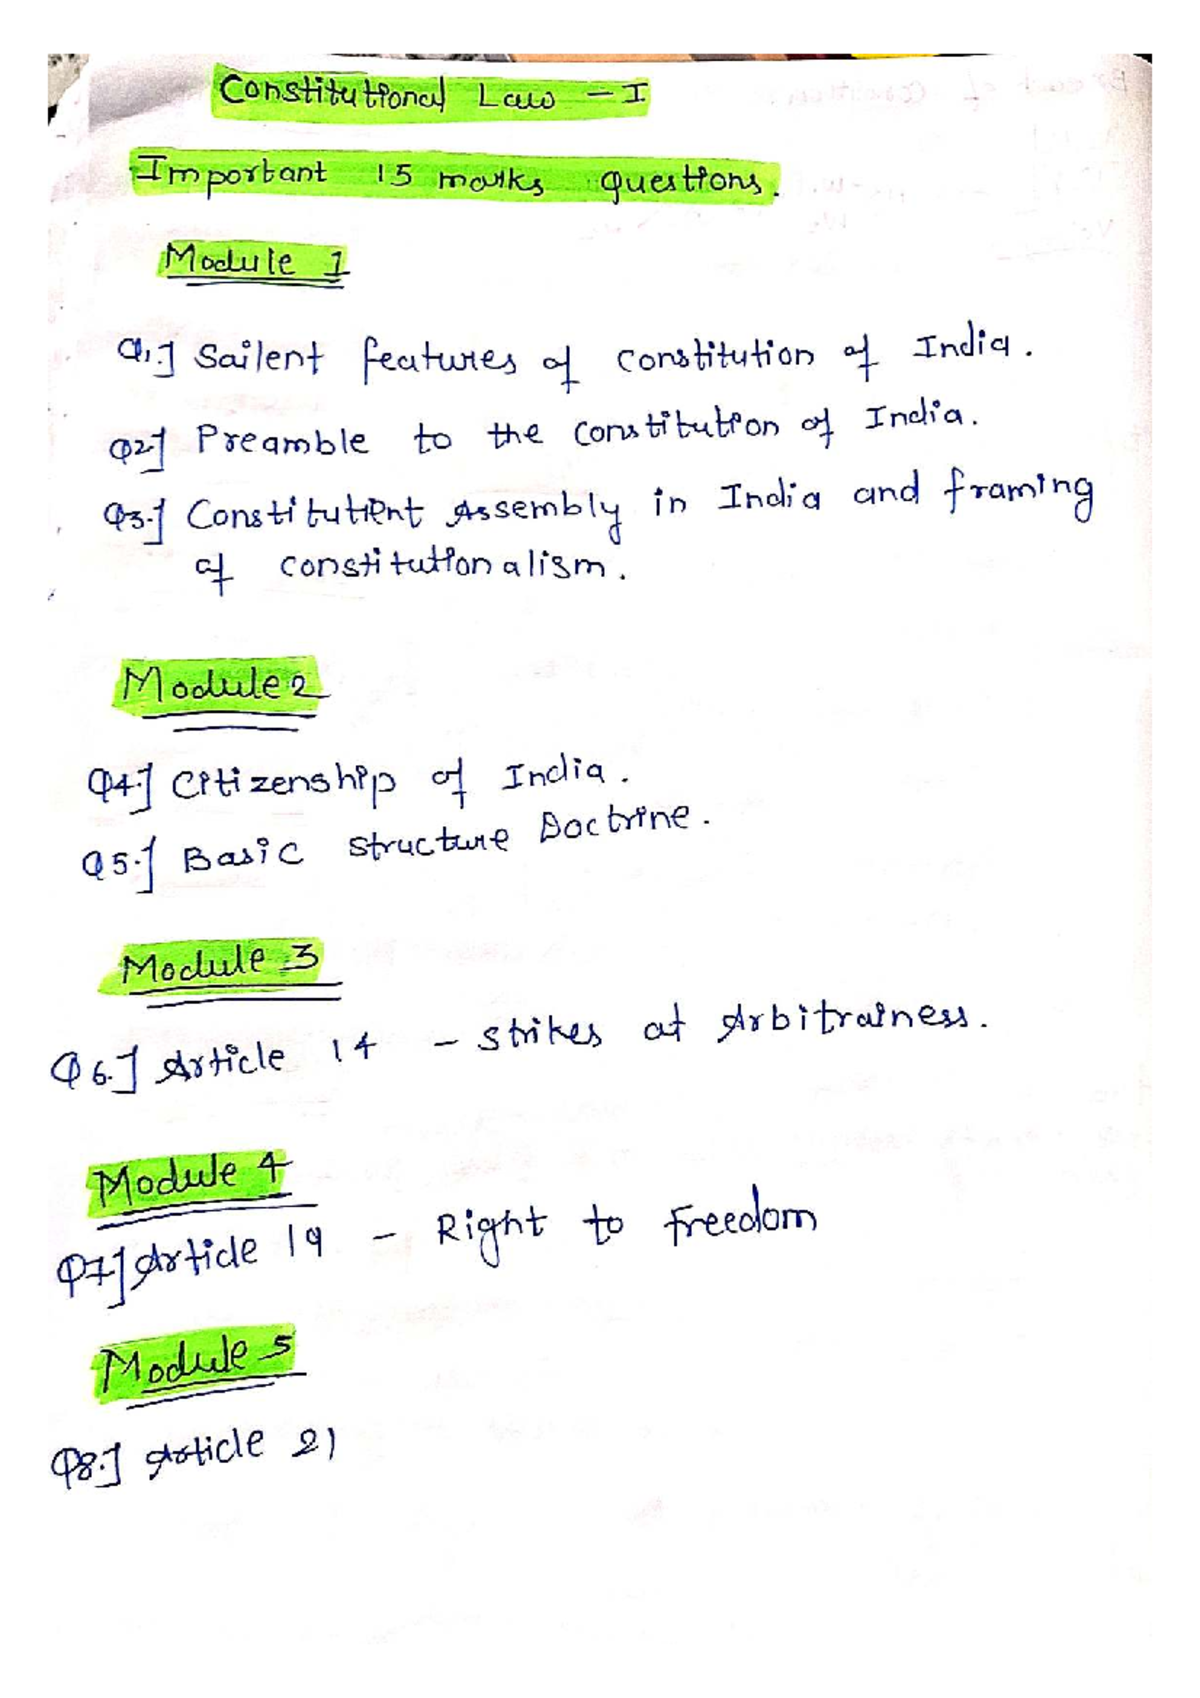 Constitutional Law - I
Important 15 marks questions.
Module 1
Q1.] Sailent features of constitution of India.
Q2.] Preamble to the constitution of India.
Q3.] Constitutient Assembly in India and framing
of constitutionalism.
Module 2
Q4.] Citizenship of India.
Q5.] Basic structure Doctrine.
Module 3
Q6.] Article 14 - strikes at Arbitrainess.
Module 4
Q7.] Article 19 - Right to freedom
Module 5
Q8.] Article 21